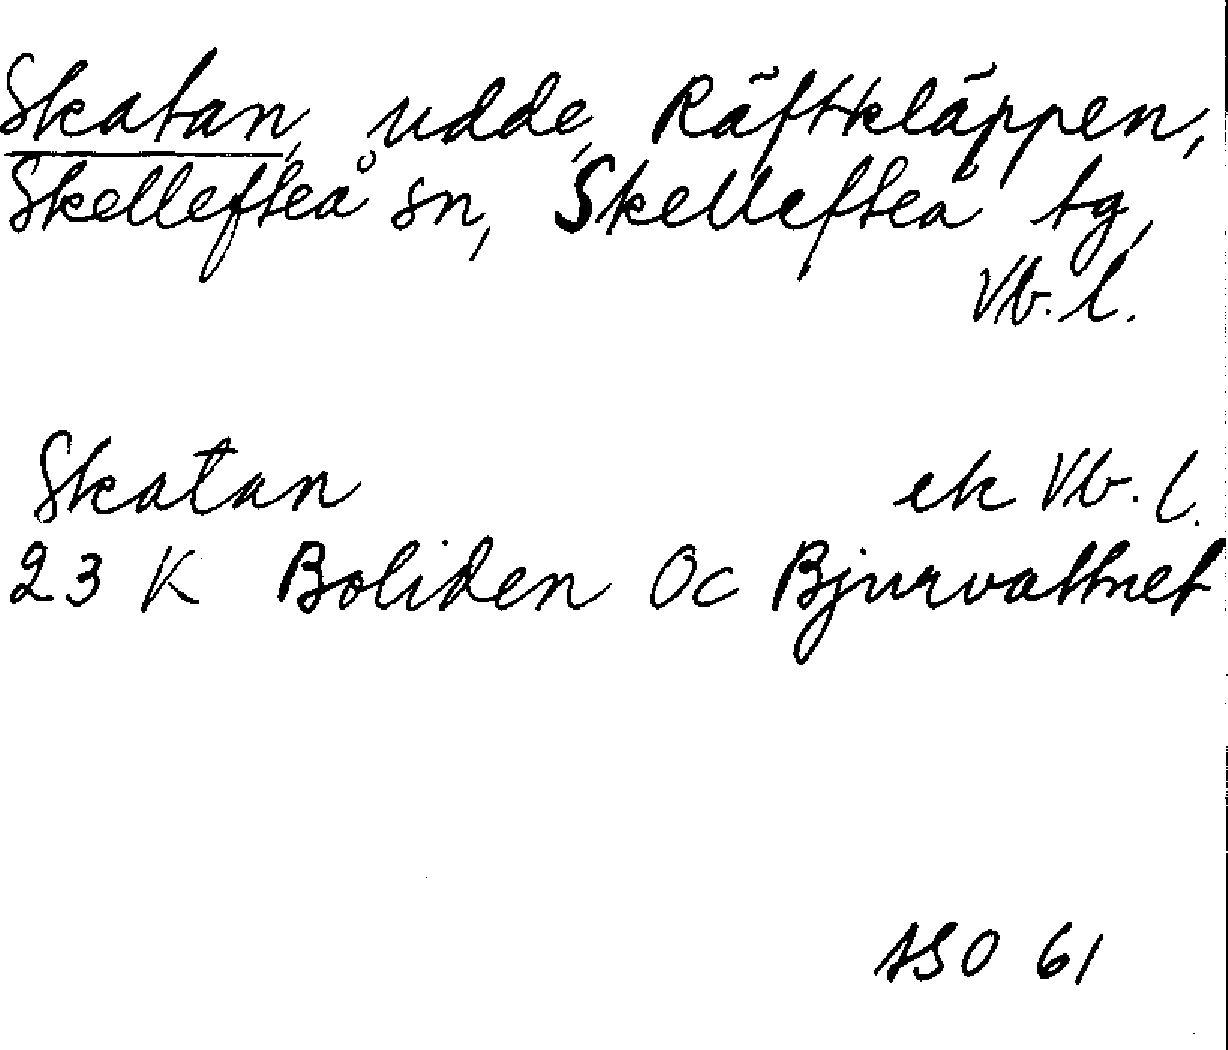 Skatan, udde, Räftkläppen,
Skellefteå sn, Skellefteå tg,
Vb. l.
Skatan ek Vb. l.
23 K Boliden Oc Bjurvattnet
ASO 61